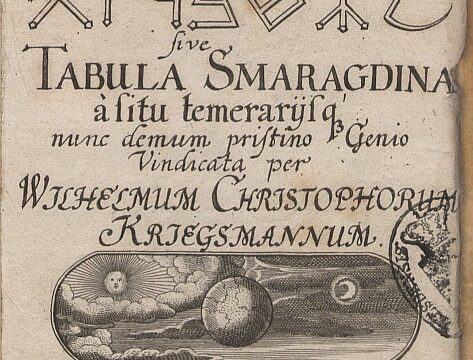 sive
TABULA SMARAGDINA
à situ temerarijsq́
nunc demum pristino Genio
Vindicata per
WILHELMUM CHRISTOPHORUM
KRIEGSMANNUM.